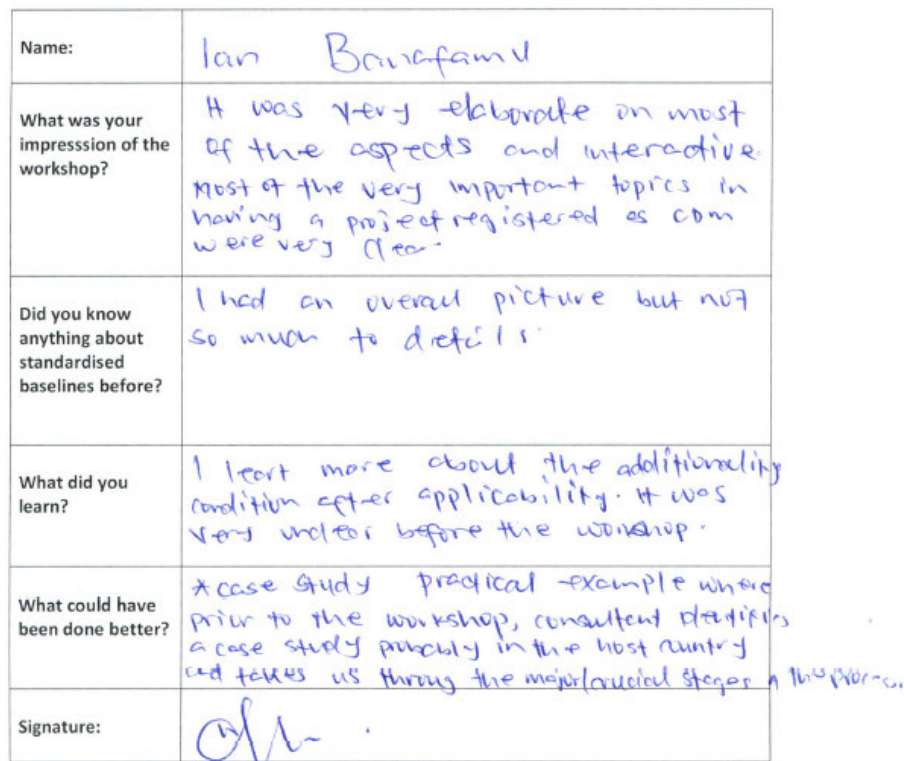 Name:
Ian Banafamu
What was your
impresssion of the
workshop?
It was very elaborate on most
of the aspects and interactive.
Most of the very important topics in
having a project registered as CDM
were very clear.
Did you know
anything about
standardised
baselines before?
I had an overall picture but not
so much to details.
What did you
learn?
I leart more about the additionality
condition after applicability. It was
very unclear before the workshop.
What could have
been done better?
* case study practical example where
prior to the workshop, consultant identifies
a case study probably in the host country
and takes us throug the major/crucial stages in the process.
Signature: